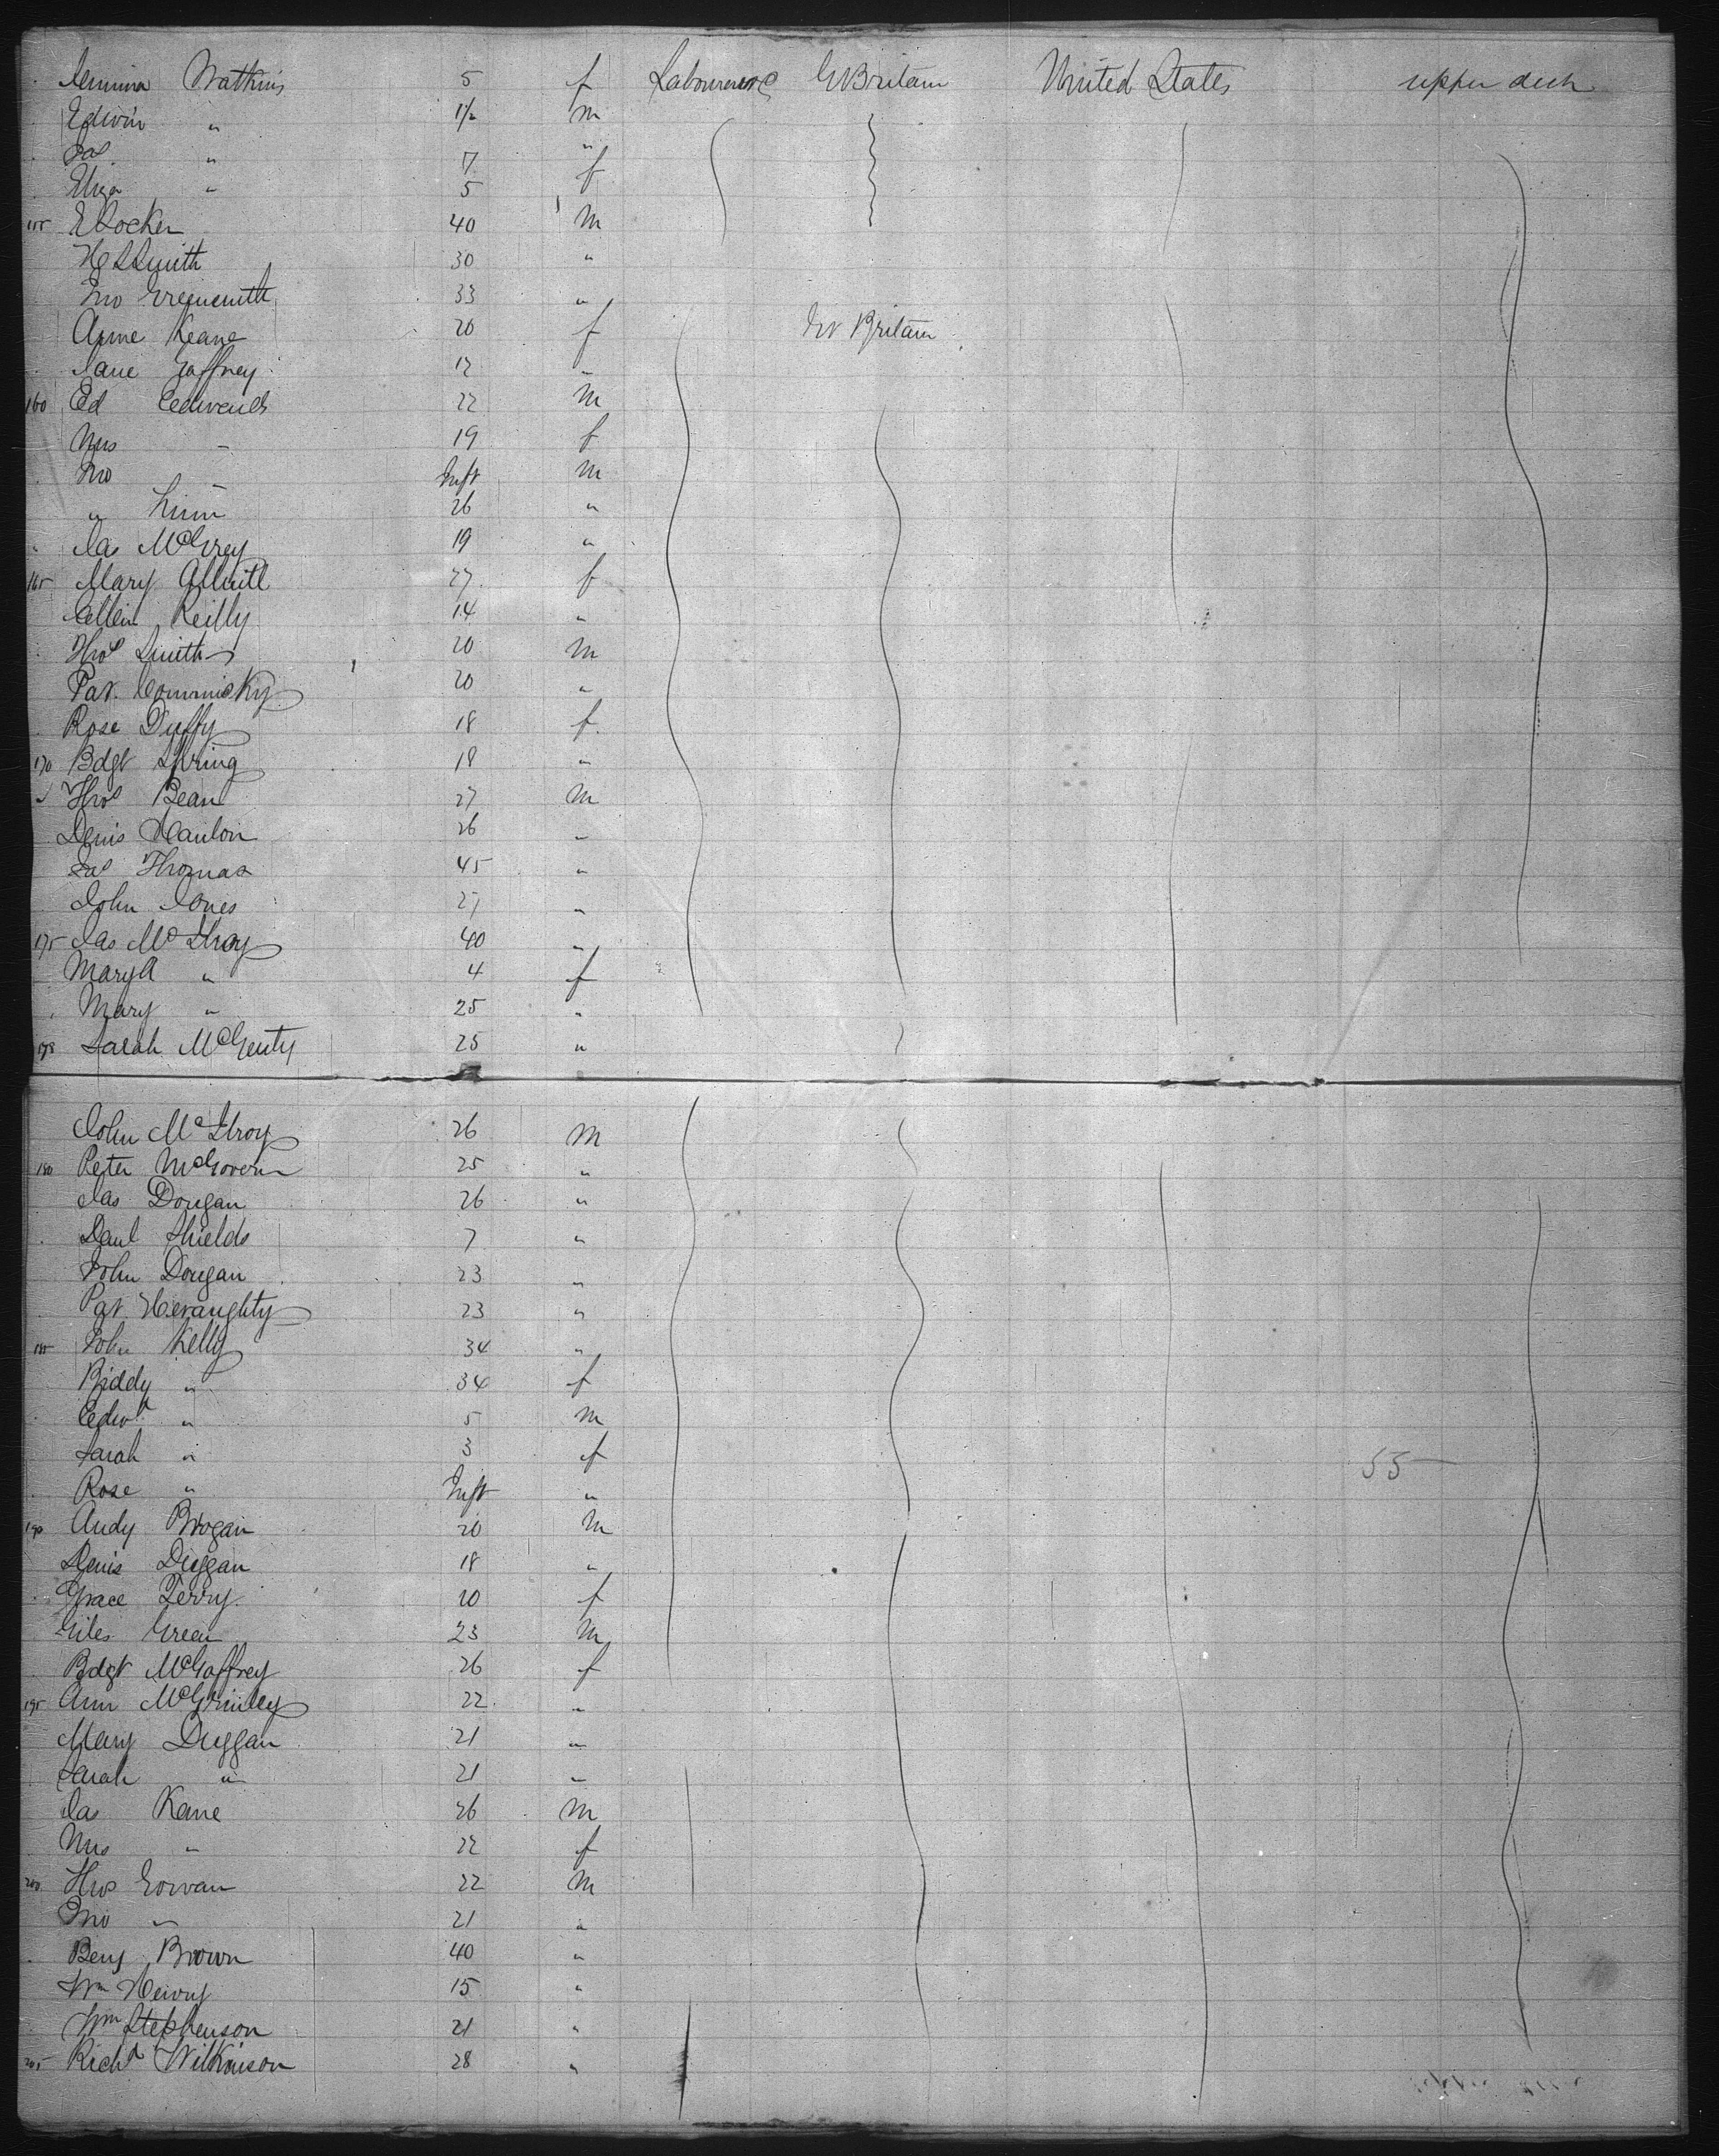 Jemima Watkins 5 f Labourers &c Gt Britain United States upper deck
Edwin " 1½ m
Jas " 7 "
Eliza " 5 f
155 E Cocker 40 m
H Smith 30 "
Jno 33 "
Anne Keane 20 f Gt Britain
Jane Gaffney 17 "
160 Ed Edwards 22 m
Mrs " 19 f
Jno " Inft m
" 26 "
Jas 19 "
165 Mary 27 f
Ellen Reilly 14 "
Thos Smith 20 m
Pat. 20 "
Rose Duffy 18 f
170 Bdgt Spring 18 "
Thos Bean 27 m
Denis Hanlon 26 "
Jas Thomas 45 "
John Jones 27 "
175 Jas McIlroy 40 "
Mary A " 4 f
Mary " 25 "
178 Sarah McGenty 25 "
John McIlroy 26 m
180 Peter McGovern 25 "
Jas Dougan 26 "
Danl Shields 7 "
John Dougan 23 "
Pat. Heraughty 23 "
185 John Kelly 34 "
Biddy " 34 f
Edwd " 5 m
Sarah " 3 f 55
Rose " Inft "
190 Andy Brogan 20 m
Denis Duggan 18 "
Grace Terry 20 f
Giles Green 23 m
Bdgt McGaffrey 26 f
195 Ann McGinley 22 "
Mary Duggan 21 "
Sarah " 21 "
Jas Kane 26 m
Mrs " 22 f
200 Thos Gowan 22 m
Jno " 21 "
Benj Brown 40 "
Wm Henry 15 "
Wm Stephenson 21 "
205 Richd Wilkinson 28 "